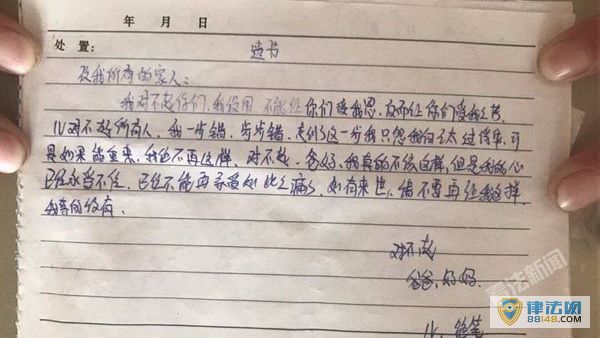 年 月 日
处置: 遗书
及我所有的家人:
我对不起你们,我没用,不能让你们致我恩,反而让你们受我之苦,
儿对不起所有人,我一步错,步步错,走到了这一步我只怨我自己太过
是如果能重来,我绝不再这样,对不起,爸妈,我真的不该这样,但是我的心
已经承当不住,已经不能再承受如此之痛了,如有来世,绝不要再让我这样,
我真的没有.
对不起
爸爸,妈妈.
儿 绝笔
看法新闻
律法网
88148.com